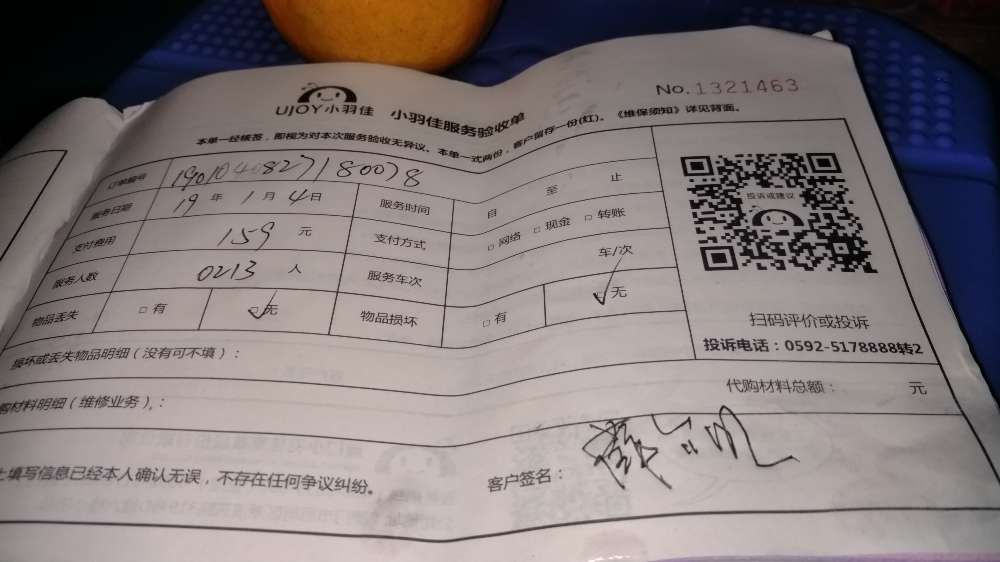 No.1321463
UJOY小羽佳 小羽佳服务验收单
本单一经核签，即视为对本次服务验收无异议。本单一式两份，客户留存一份(红)。《维保须知》详见背面。
订单编号 1901040827180078
服务日期 19 年 1 月 4 日 服务时间 自 至 止
支付费用 159 元 支付方式 □ 网络 □ 现金 □ 转账
服务人数 0213 人 服务车次 车/次
物品丢失 □ 有 ☑ 无 物品损坏 □ 有 ☑ 无
投诉或建议
扫码评价或投诉
投诉电话：0592-5178888转2
损坏或丢失物品明细（没有可不填）：
购材料明细（维修业务）： 代购材料总额： 元
上填写信息已经本人确认无误，不存在任何争议纠纷。 客户签名：